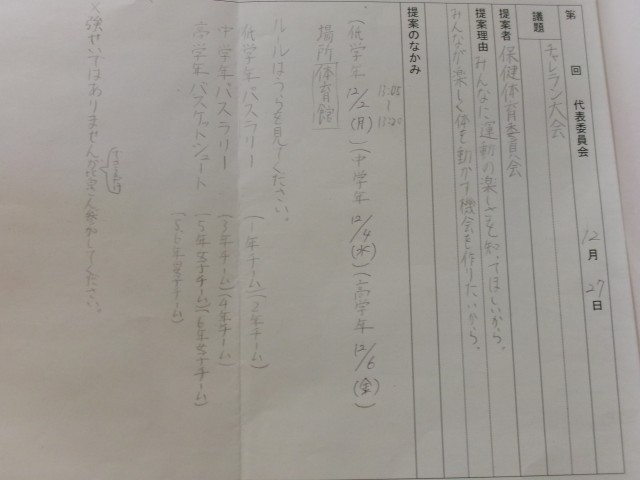 第 回 代表委員会 12月27日
議題 チャレラン大会
提案者 保健体育委員会
提案理由 みんなに運動の楽しさを知ってほしいから。
みんなが楽しく体を動かす機会を作りたいから。
提案のなかみ
11:05
|
11:20
(低学年 12/2(月))(中学年 12/4(水))(高学年 12/6(金))
場所 体育館
ルールはうらを見てください。
低学年 パスラリー (1年チーム)(2年チーム)
中学年 パスラリー (3年チーム)(4年チーム)
高学年 バスケットシュート
※強せいではありませんが 参加してください。